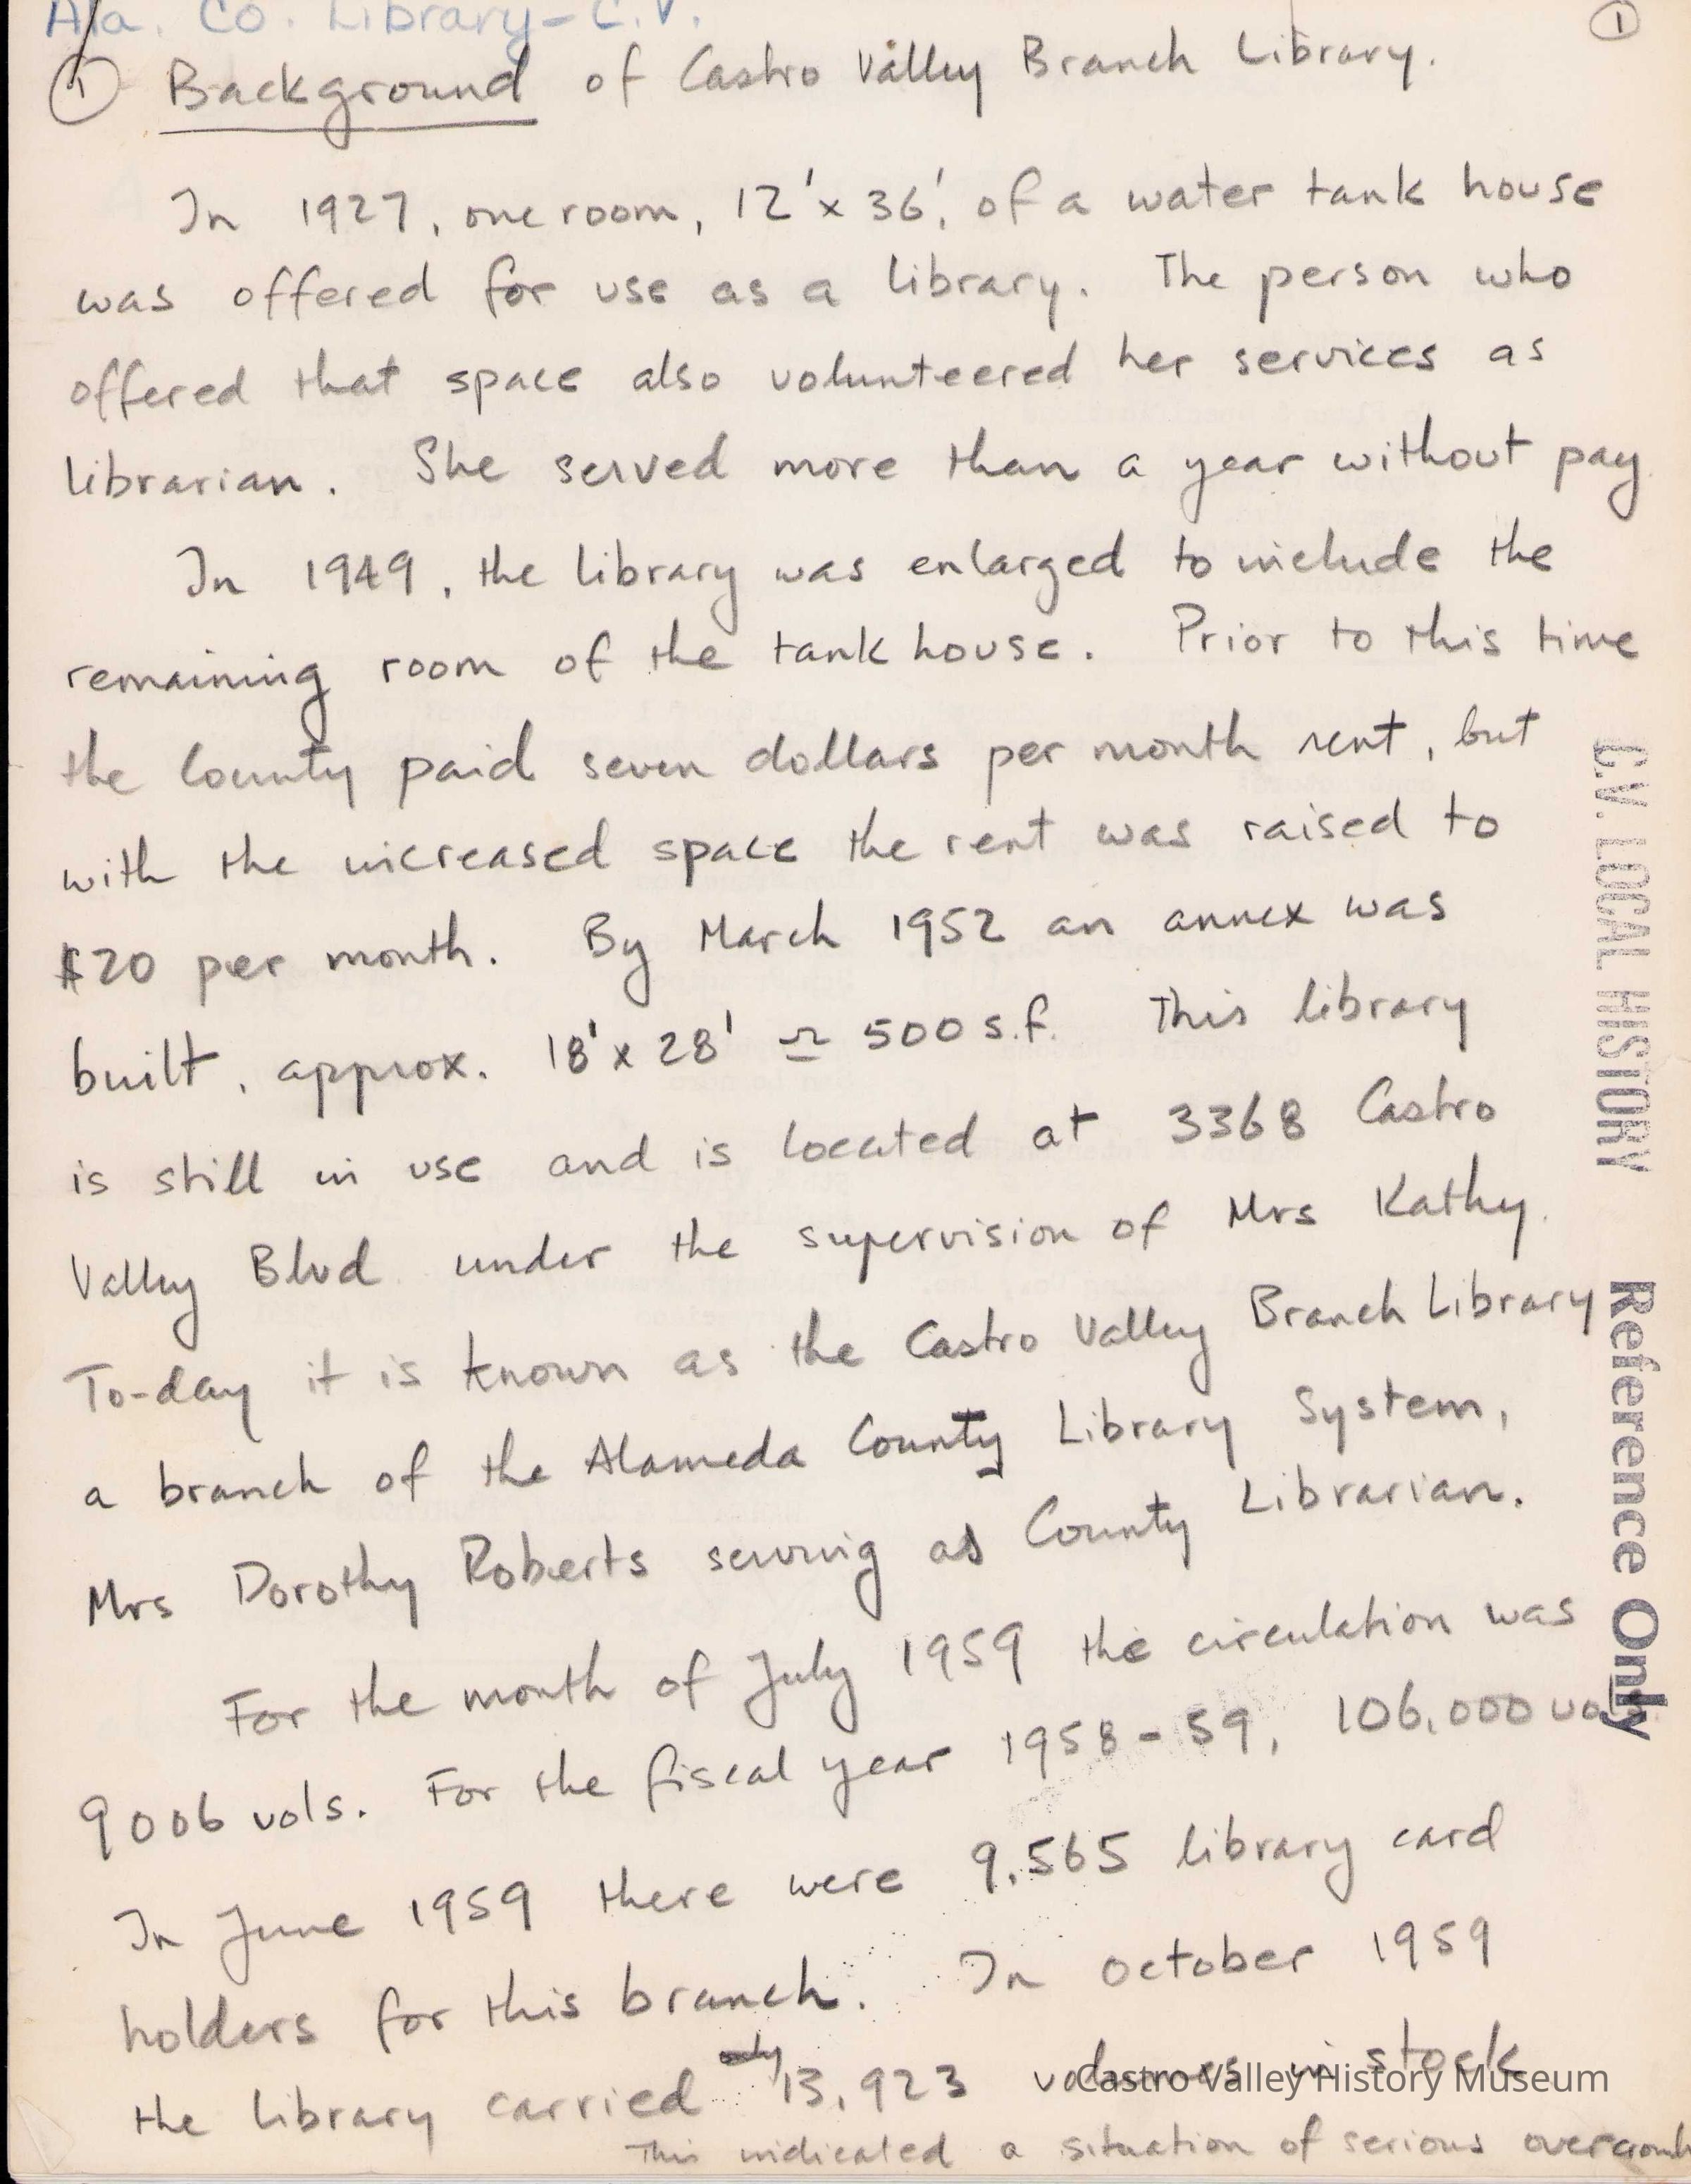 Ala. Co. Library - C.V.
①
① Background of Castro Valley Branch Library.
In 1927, one room, 12' x 36', of a water tank house
was offered for use as a library. The person who
offered that space also volunteered her services as
librarian. She served more than a year without pay
In 1949, the library was enlarged to include the
remaining room of the tank house. Prior to this time
the County paid seven dollars per month rent, but
with the increased space the rent was raised to
$20 per month. By March 1952 an annex was
built, approx. 18' x 28' ≃ 500 s.f. This library
is still in use and is located at 3368 Castro
Valley Blvd under the supervision of Mrs Kathy.
To-day it is known as the Castro Valley Branch Library
a branch of the Alameda County Library System,
Mrs Dorothy Roberts serving as County Librarian.
For the month of July 1959 the circulation was
9006 vols. For the fiscal year 1958-59, 106,000
In June 1959 there were 9,565 library card
holders for this branch. In October 1959
only
the library carried 13,923 volumes in stock
This indicated a situation of serious
C.V. LOCAL HISTORY
Reference Only
Castro Valley History Museum